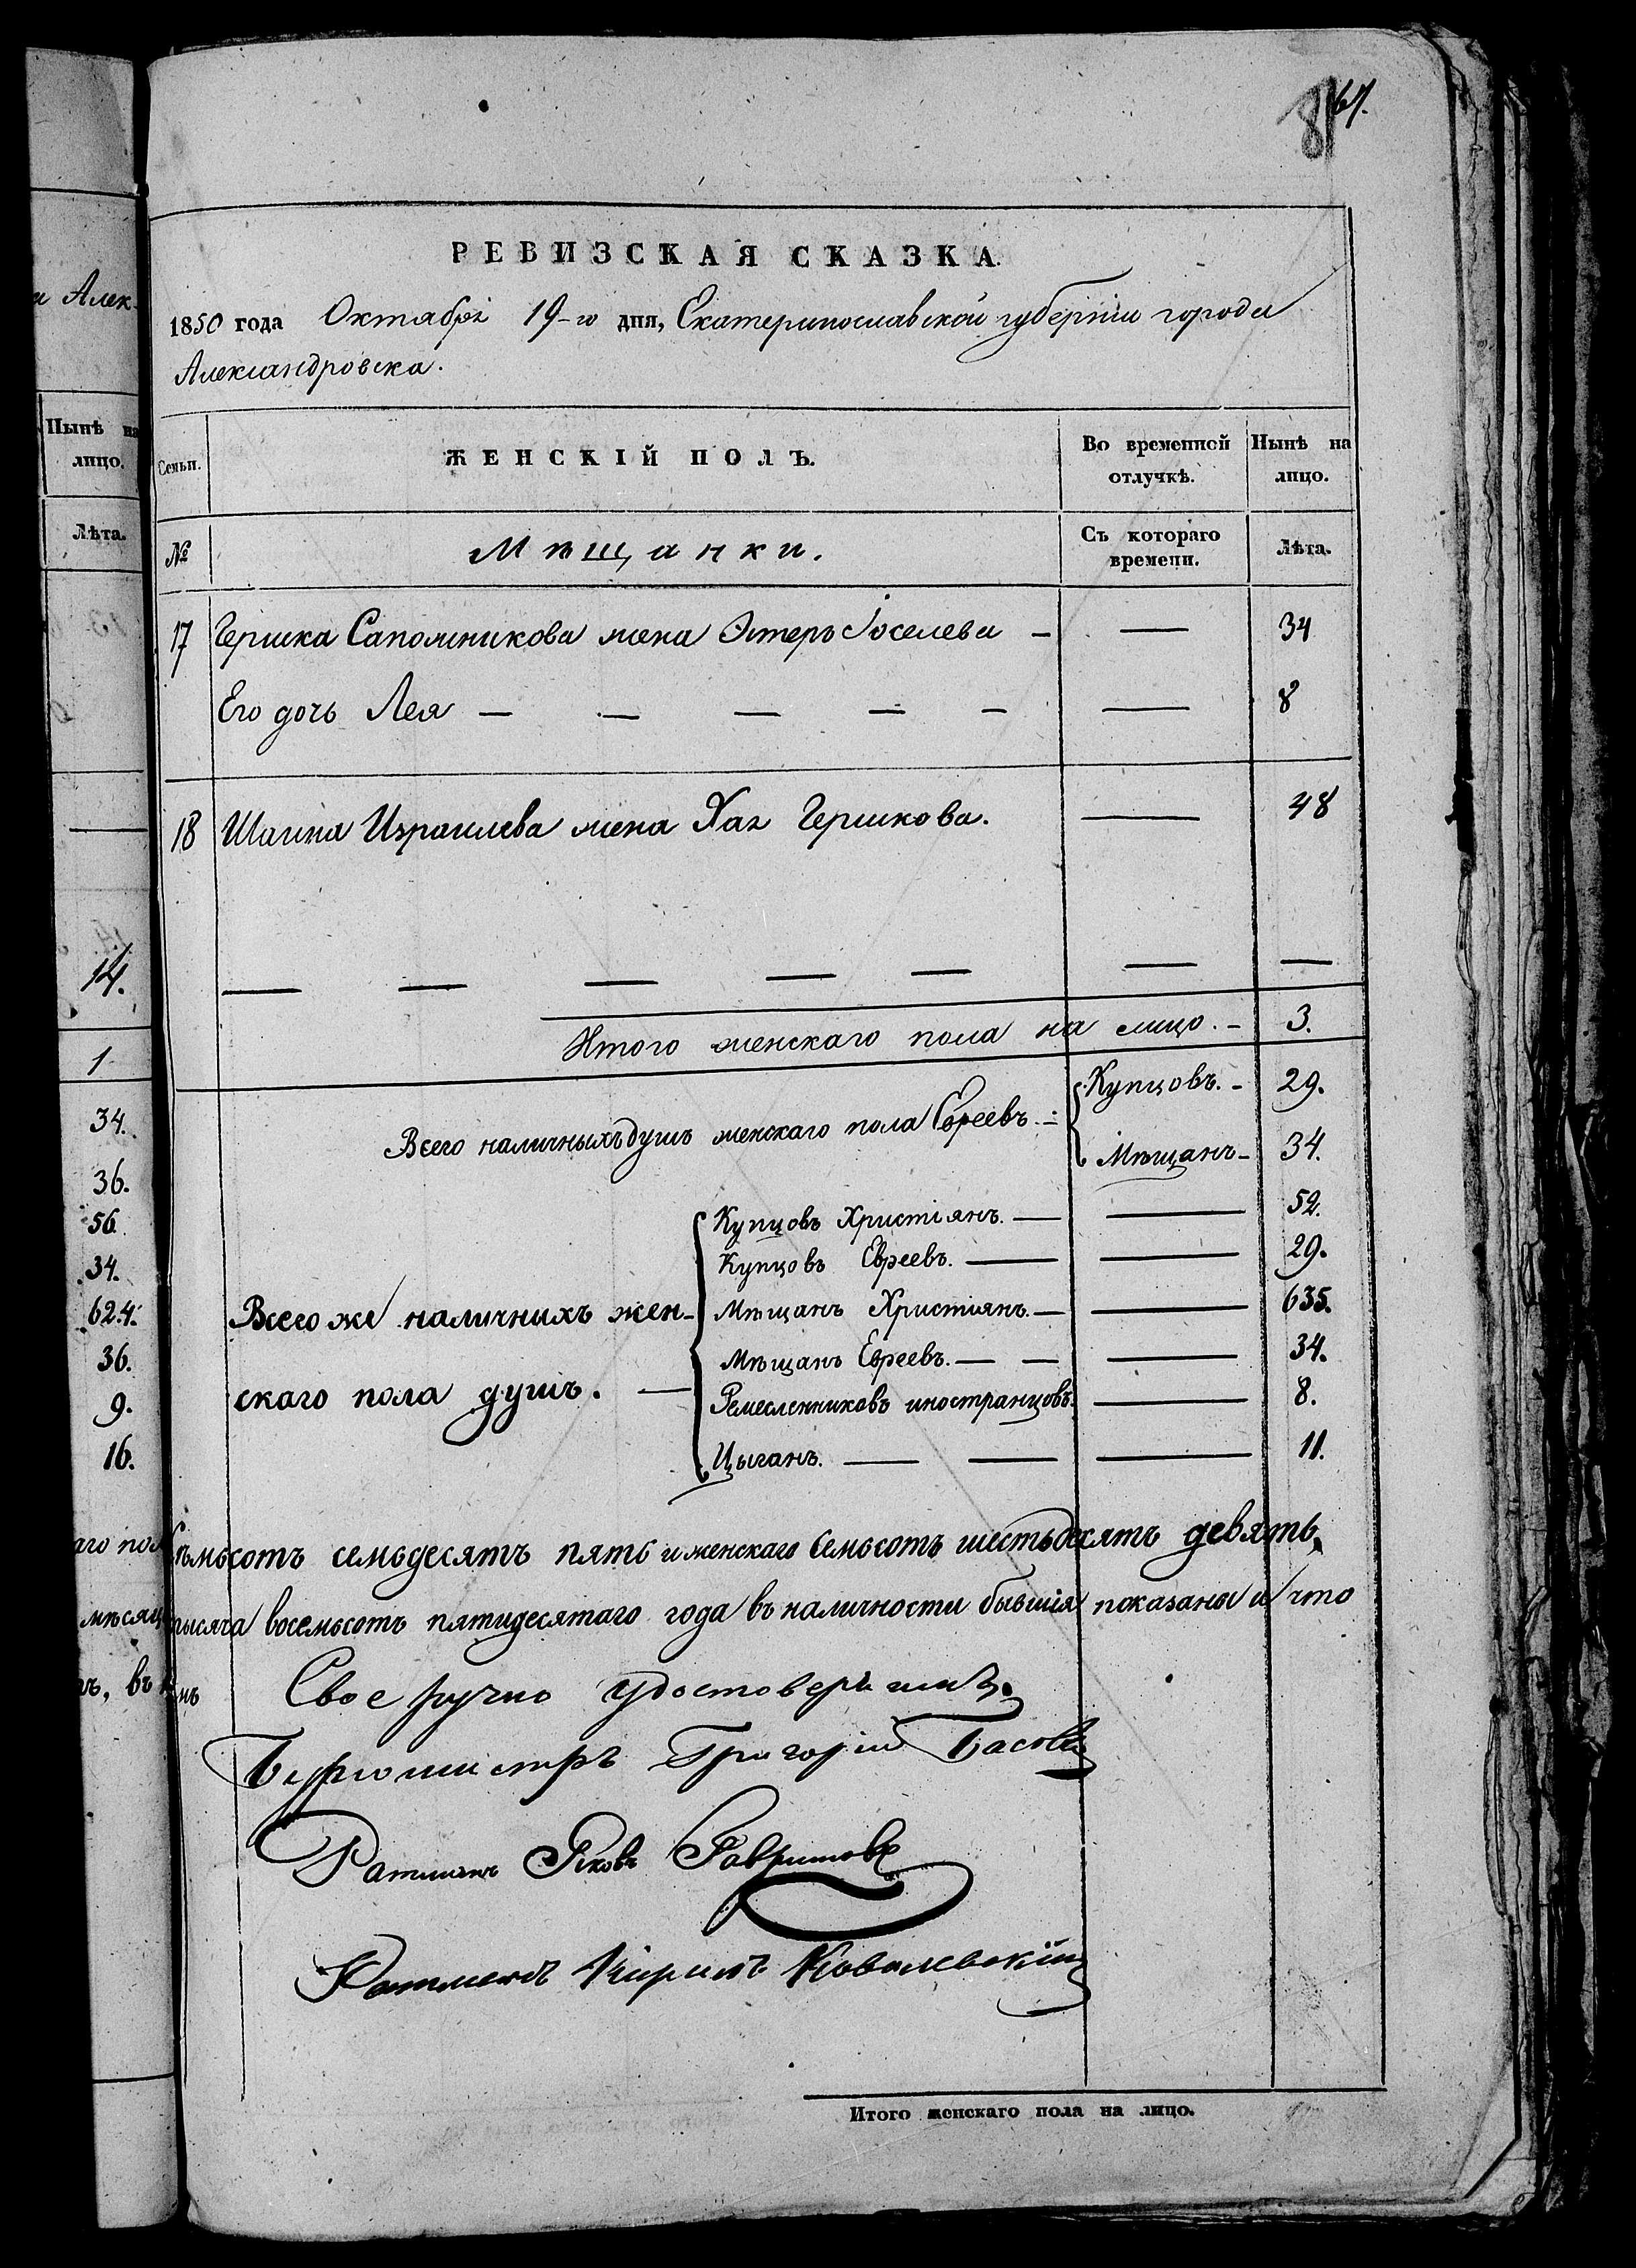 81 67.
и Алек-
Нынѣ на
лицо.
Лѣта.
14.
1
34.
36.
56.
34.
624.
36.
9.
16.
аго пол
мѣсяц
въ
РЕВИЗСКАЯ СКАЗКА.
1850 года Октября 19-го дня, Екатеринославской губерніи города
Александровска.
Семьи. ЖЕНСКІЙ ПОЛЪ. Во временной отлучкѣ. Нынѣ на лицо.
№ Мѣщанки. Съ котораго времени. Лѣта.
17 Гершка Сапожникова жена Эстеръ Іоселева — — 34
Его дочь Лея — — — — — — 8
18 Шаина Израилева жена Хая Гершкова. — 48
— — — — — — —
Итого женскаго пола на лицо. — 3.
Всего наличныхъ душъ женскаго пола Евреевъ. Купцовъ. — 29.
Мѣщанъ — 34.
Купцовъ Христіянъ. — — 52.
Купцовъ Евреевъ. — — 29.
Всего же наличныхъ жен- Мѣщанъ Христіянъ. — — 635.
Мѣщанъ Евреевъ. — — — 34.
скаго пола душъ. — Ремесленниковъ иностранцовъ. — 8.
Цыганъ. — — — 11.
семьсотъ семьдесятъ пять и женскаго семьсотъ шестьдесятъ девять,
тысяча восемьсотъ пятидесятаго года въ наличности бывшія показаны и что
Своеручно удостоверяимъ.
Бургомистръ Григорій Басовъ
Ратманъ Яковъ Гавриловъ
Ратманъ Кирилъ Ковалевскій
Итого женскаго пола на лицо.